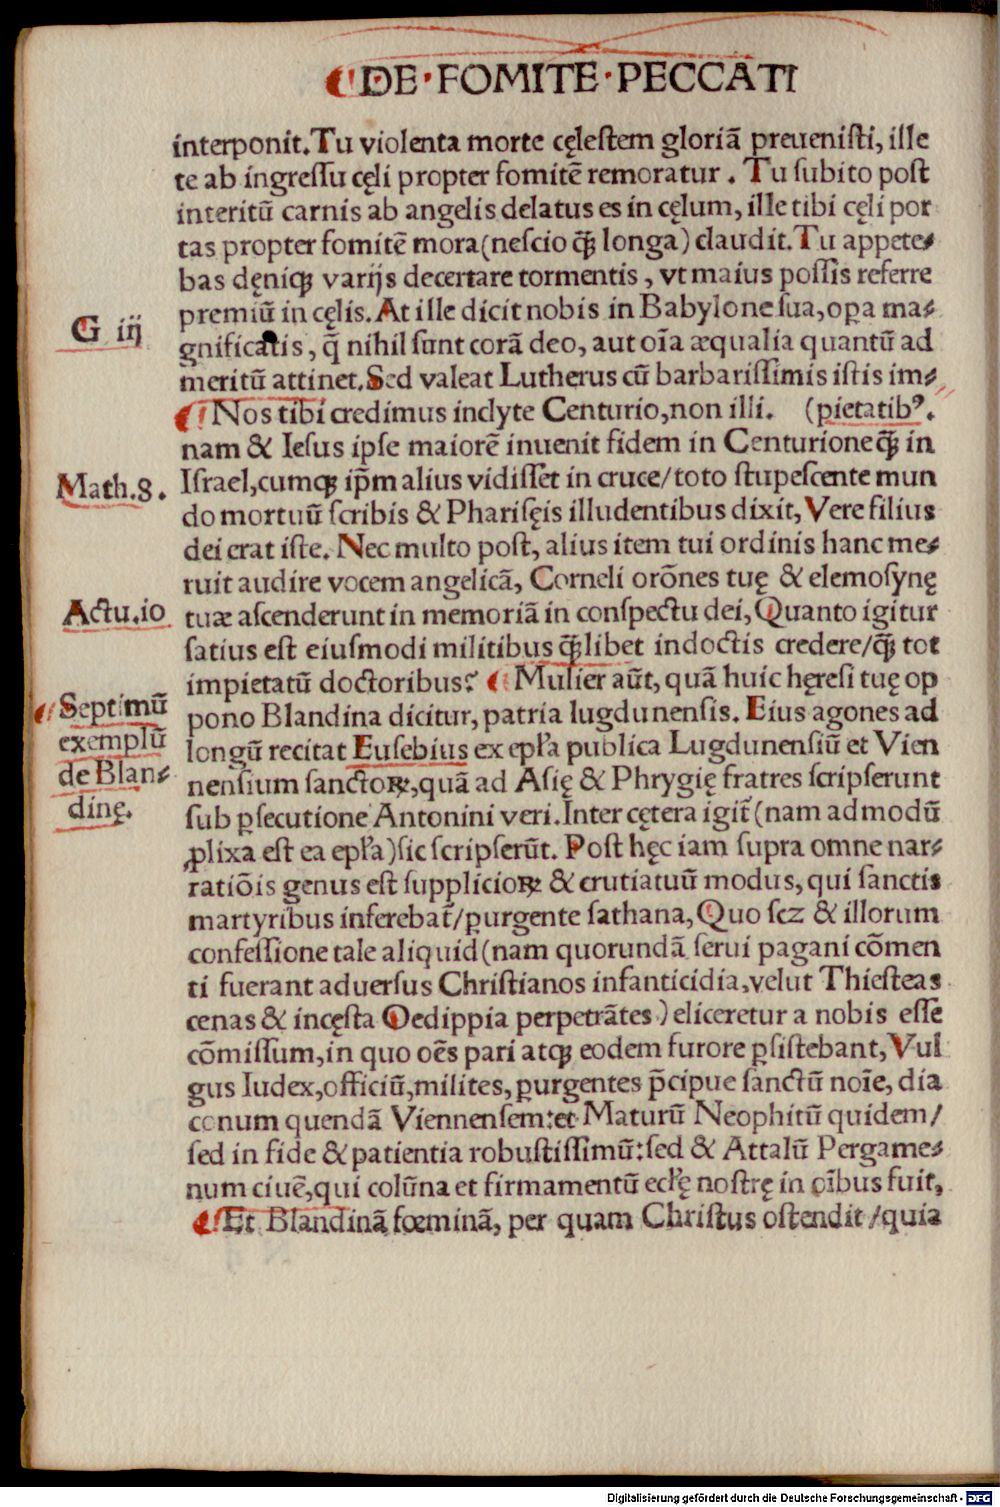 DE·FOMITE·PECCATI
interponit. Tu violenta morte cęlestem gloriā preuenisti, ille
te ab ingressu cęli propter fomitē remoratur. Tu subito post
interitū carnis ab angelis delatus es in cęlum, ille tibi cęli por
tas propter fomitē mora (nescio q̄ꝫ longa) claudit. Tu appete⸗
bas dęniqꝫ varijs decertare tormentis, vt maius possis referre
premiū in cęlis. At ille dicit nobis in Babylone sua, oꝑa ma⸗
G iij
gnificatis, q̄ nihil sunt corā deo, aut oīa æqualia quantū ad
meritū attinet. Sed valeat Lutherus cū barbarissimis istis im⸗
Nos tibi credimus inclyte Centurio, non illi. (pietatibꝰ.
nam & Iesus ipse maiorē inuenit fidem in Centurione q̄ꝫ in
Math.8.
Israel, cumqꝫ ip̄m alius vidisset in cruce/ toto stupescente mun
do mortuū scribis & Pharisęis illudentibus dixit, Vere filius
dei erat iste. Nec multo post, alius item tui ordinis hanc me⸗
ruit audire vocem angelicā, Corneli orōnes tuę & elemosynę
Actu.10
tuæ ascenderunt in memoriā in conspectu dei, Quanto igitur
satius est eiusmodi militibus q̄ꝫlibet indoctis credere/ q̄ꝫ tot
impietatū doctoribus? Mulier aūt, quā huic hęresi tuę op
Septimū
exemplū
de Blan⸗
dinę.
pono Blandina dicitur, patria lugdunensis. Eius agones ad
longū recitat Eusebius ex epl̄a publica Lugdunensiū et Vien
nensium sanctoꝝ, quā ad Asię & Phrygię fratres scripserunt
sub ꝑsecutione Antonini veri. Inter cętera igit̄ (nam admodū
ꝓlixa est ea epl̄a) sic scripserūt. Post hęc iam supra omne nar⸗
ratiōis genus est supplicioꝝ & crutiatuū modus, qui sanctis
martyribus inferebat̄/ ꝑurgente sathana, Quo scz & illorum
confessione tale aliquid (nam quorundā serui pagani cōmen
ti fuerant aduersus Christianos infanticidia, velut Thiesteas
cenas & incęsta Oedippia perpetrātes) eliceretur a nobis esse
cōmissum, in quo oēs pari atqꝫ eodem furore ꝑsistebant, Vul
gus Iudex, officiū, milites, ꝑurgentes p̄cipue sanctū noīe, dia
conum quendā Viennensem: et Maturū Neophitū quidem/
sed in fide & patientia robustissimū: sed & Attalū Pergame⸗
num ciuē, qui colūna et firmamentū eccl̄ę nostrę in oībus fuit,
Et Blandinā fœminā, per quam Christus ostendit / quia
Digitalisierung gefördert durch die Deutsche Forschungsgemeinschaft - DFG